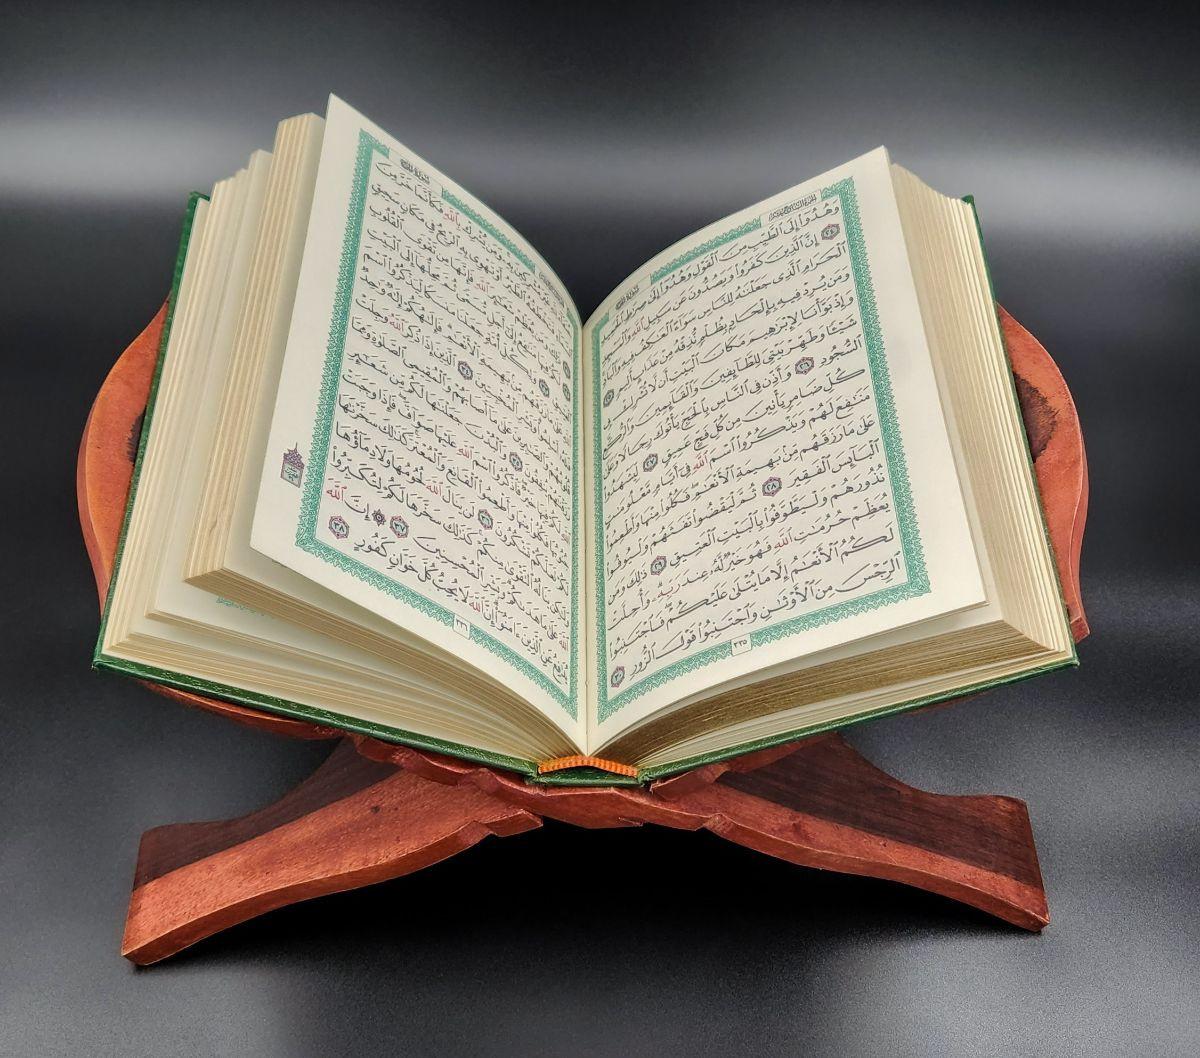 الجزء السابع عشر سورة الحج
وَهُدُوٓا۟ إِلَى ٱلطَّيِّبِ مِنَ ٱلْقَوْلِ وَهُدُوٓا۟ إِلَىٰ صِرَٰطِ
٢٤ إِنَّ ٱلَّذِينَ كَفَرُوا۟ وَيَصُدُّونَ عَن سَبِيلِ ٱللَّهِ وَٱلْمَسْجِدِ
ٱلْحَرَامِ ٱلَّذِى جَعَلْنَٰهُ لِلنَّاسِ سَوَآءً ٱلْعَٰكِفُ فِيهِ وَٱلْبَادِ
وَمَن يُرِدْ فِيهِ بِإِلْحَادٍۭ بِظُلْمٍ نُّذِقْهُ مِنْ عَذَابٍ أَلِيمٍ ٢٥
وَإِذْ بَوَّأْنَا لِإِبْرَٰهِيمَ مَكَانَ ٱلْبَيْتِ أَن لَّا تُشْرِكْ بِى
شَيْـًٔا وَطَهِّرْ بَيْتِىَ لِلطَّآئِفِينَ وَٱلْقَآئِمِينَ وَٱلرُّكَّعِ
ٱلسُّجُودِ ٢٦ وَأَذِّن فِى ٱلنَّاسِ بِٱلْحَجِّ يَأْتُوكَ رِجَالًا وَعَلَىٰ
كُلِّ ضَامِرٍ يَأْتِينَ مِن كُلِّ فَجٍّ عَمِيقٍ ٢٧ لِّيَشْهَدُوا۟
مَنَٰفِعَ لَهُمْ وَيَذْكُرُوا۟ ٱسْمَ ٱللَّهِ فِىٓ أَيَّامٍ مَّعْلُومَٰتٍ
عَلَىٰ مَا رَزَقَهُم مِّنۢ بَهِيمَةِ ٱلْأَنْعَٰمِ فَكُلُوا۟ مِنْهَا وَأَطْعِمُوا۟
ٱلْبَآئِسَ ٱلْفَقِيرَ ٢٨ ثُمَّ لْيَقْضُوا۟ تَفَثَهُمْ وَلْيُوفُوا۟
نُذُورَهُمْ وَلْيَطَّوَّفُوا۟ بِٱلْبَيْتِ ٱلْعَتِيقِ ٢٩ ذَٰلِكَ وَمَن
يُعَظِّمْ حُرُمَٰتِ ٱللَّهِ فَهُوَ خَيْرٌ لَّهُۥ عِندَ رَبِّهِۦ وَأُحِلَّتْ
لَكُمُ ٱلْأَنْعَٰمُ إِلَّا مَا يُتْلَىٰ عَلَيْكُمْ فَٱجْتَنِبُوا۟
ٱلرِّجْسَ مِنَ ٱلْأَوْثَٰنِ وَٱجْتَنِبُوا۟ قَوْلَ ٱلزُّورِ ٣٠
٣٣٥
سورة الحج
بِهِۦ وَمَن يُشْرِكْ بِٱللَّهِ فَكَأَنَّمَا خَرَّ مِنَ
ٱلطَّيْرُ أَوْ تَهْوِى بِهِ ٱلرِّيحُ فِى مَكَانٍ سَحِيقٍ
ٱللَّهِ فَإِنَّهَا مِن تَقْوَى ٱلْقُلُوبِ
إِلَىٰٓ أَجَلٍ مُّسَمًّى ثُمَّ مَحِلُّهَآ إِلَى ٱلْبَيْتِ
أُمَّةٍ جَعَلْنَا مَنسَكًا لِّيَذْكُرُوا۟ ٱسْمَ
رَزَقَهُم مِّنۢ بَهِيمَةِ ٱلْأَنْعَٰمِ فَإِلَٰهُكُمْ إِلَٰهٌ وَٰحِدٌ
ٱلْمُخْبِتِينَ ٣٤ ٱلَّذِينَ إِذَا ذُكِرَ ٱللَّهُ وَجِلَتْ
عَلَىٰ مَآ أَصَابَهُمْ وَٱلْمُقِيمِى ٱلصَّلَوٰةِ وَمِمَّا
٣٥ وَٱلْبُدْنَ جَعَلْنَٰهَا لَكُم مِّن شَعَٰٓئِرِ
ٱسْمَ ٱللَّهِ عَلَيْهَا صَوَآفَّ فَإِذَا وَجَبَتْ
وَأَطْعِمُوا۟ ٱلْقَانِعَ وَٱلْمُعْتَرَّ كَذَٰلِكَ سَخَّرْنَٰهَا
لَكُمْ لَعَلَّكُمْ تَشْكُرُونَ ٣٦ لَن يَنَالَ ٱللَّهَ لُحُومُهَا وَلَا دِمَآؤُهَا
وَلَٰكِن يَنَالُهُ ٱلتَّقْوَىٰ مِنكُمْ كَذَٰلِكَ سَخَّرَهَا لَكُمْ لِتُكَبِّرُوا۟
ٱللَّهَ عَلَىٰ مَا هَدَىٰكُمْ وَبَشِّرِ ٱلْمُحْسِنِينَ ٣٧ إِنَّ ٱللَّهَ
يُدَٰفِعُ عَنِ ٱلَّذِينَ ءَامَنُوٓا۟ إِنَّ ٱللَّهَ لَا يُحِبُّ كُلَّ خَوَّانٍ كَفُورٍ ٣٨
٣٣٦